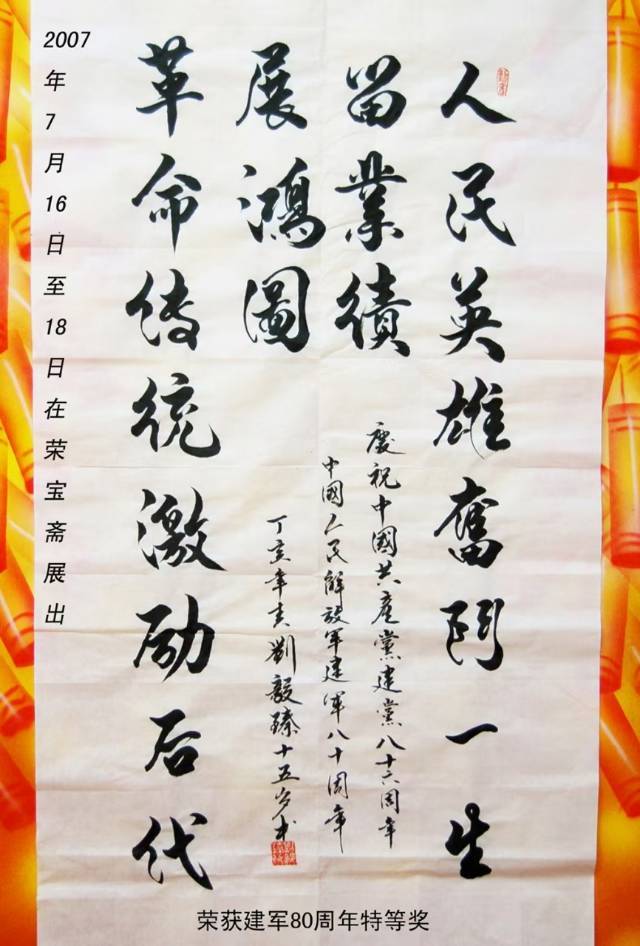 2007年7月16日至18日在荣宝斋展出
人民英雄奮鬥一生
留業績
革命传统激励后代
展鴻圖
慶祝中國共產黨建黨八十六周年
中國人民解放军建军八十周年
丁亥年夏劉毅臻十五岁书
荣获建军80周年特等奖